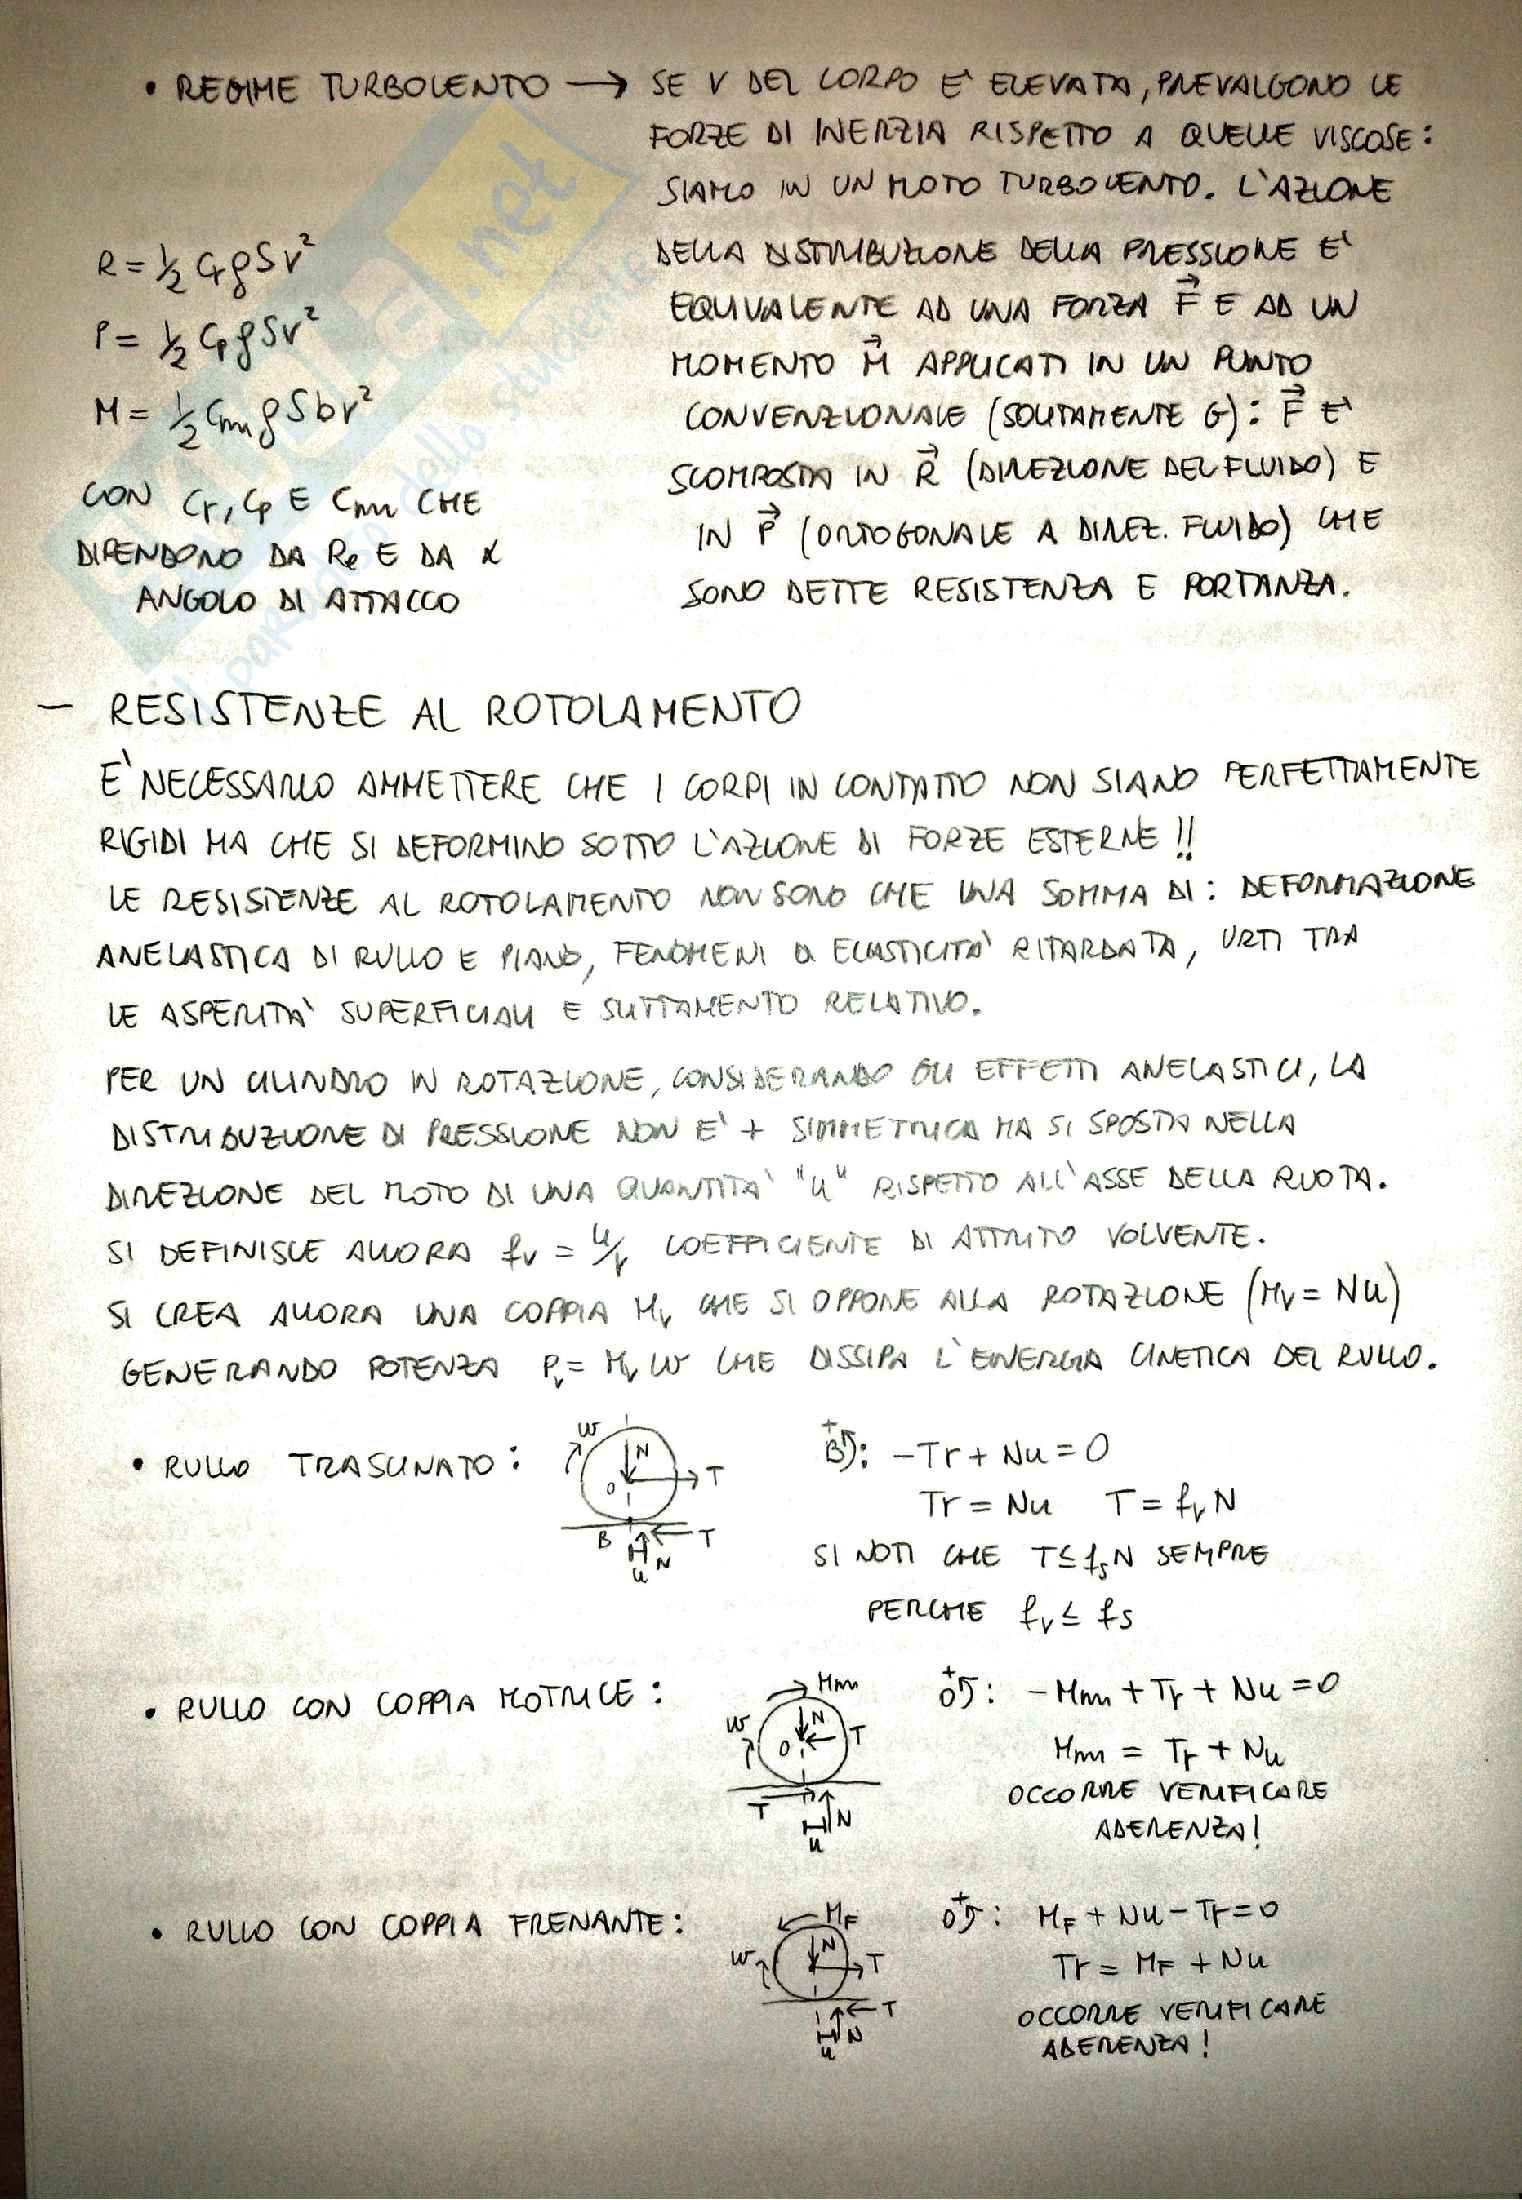 • REGIME TURBOLENTO → SE V DEL CORPO E' ELEVATA, PREVALGONO LE
FORZE DI INERZIA RISPETTO A QUELLE VISCOSE:
SIAMO IN UN MOTO TURBOLENTO. L'AZIONE
DELLA DISTRIBUZIONE DELLA PRESSIONE E'
EQUIVALENTE AD UNA FORZA F⃗ E AD UN
MOMENTO M⃗ APPLICATI IN UN PUNTO
CONVENZIONALE (SOLITAMENTE G): F⃗ E'
SCOMPOSTA IN R⃗ (DIREZIONE DEL FLUIDO) E
IN P⃗ (ORTOGONALE A DIREZ. FLUIDO) CHE
SONO DETTE RESISTENZA E PORTANZA.
R = ½ Cr ρ S v²
P = ½ Cp ρ S v²
M = ½ Cm ρ S b v²
CON Cr, Cp E Cm CHE
DIPENDONO DA Re E DA α
ANGOLO DI ATTACCO
.net
il paradiso dello studente
— RESISTENZE AL ROTOLAMENTO
E' NECESSARIO AMMETTERE CHE I CORPI IN CONTATTO NON SIANO PERFETTAMENTE
RIGIDI MA CHE SI DEFORMINO SOTTO L'AZIONE DI FORZE ESTERNE !!
LE RESISTENZE AL ROTOLAMENTO NON SONO CHE UNA SOMMA DI: DEFORMAZIONE
ANELASTICA DI RULLO E PIANO, FENOMENI DI ELASTICITA' RITARDATA, URTI TRA
LE ASPERITA' SUPERFICIALI E SLITTAMENTO RELATIVO.
PER UN CILINDRO IN ROTAZIONE, CONSIDERANDO GLI EFFETTI ANELASTICI, LA
DISTRIBUZIONE DI PRESSIONE NON E' + SIMMETRICA MA SI SPOSTA NELLA
DIREZIONE DEL MOTO DI UNA QUANTITA' "u" RISPETTO ALL'ASSE DELLA RUOTA.
SI DEFINISCE ALLORA fv = u/r COEFFICIENTE DI ATTRITO VOLVENTE.
SI CREA ALLORA UNA COPPIA Mv CHE SI OPPONE ALLA ROTAZIONE (Mv = Nu)
GENERANDO POTENZA Pv = Mv W CHE DISSIPA L'ENERGIA CINETICA DEL RULLO.
• RULLO TRASCINATO:
W
N
O
T
B
T
N
u
+
B): -Tr + Nu = 0
Tr = Nu T = fv N
SI NOTI CHE T ≤ fs N SEMPRE
PERCHE fv ≤ fs
• RULLO CON COPPIA MOTRICE:
Mm
W
N
O
T
T
N
u
+
O): -Mm + Tr + Nu = 0
Mm = Tr + Nu
OCCORRE VERIFICARE
ADERENZA!
• RULLO CON COPPIA FRENANTE:
MF
W
N
T
T
N
u
+
O): MF + Nu - Tr = 0
Tr = MF + Nu
OCCORRE VERIFICARE
ADERENZA!